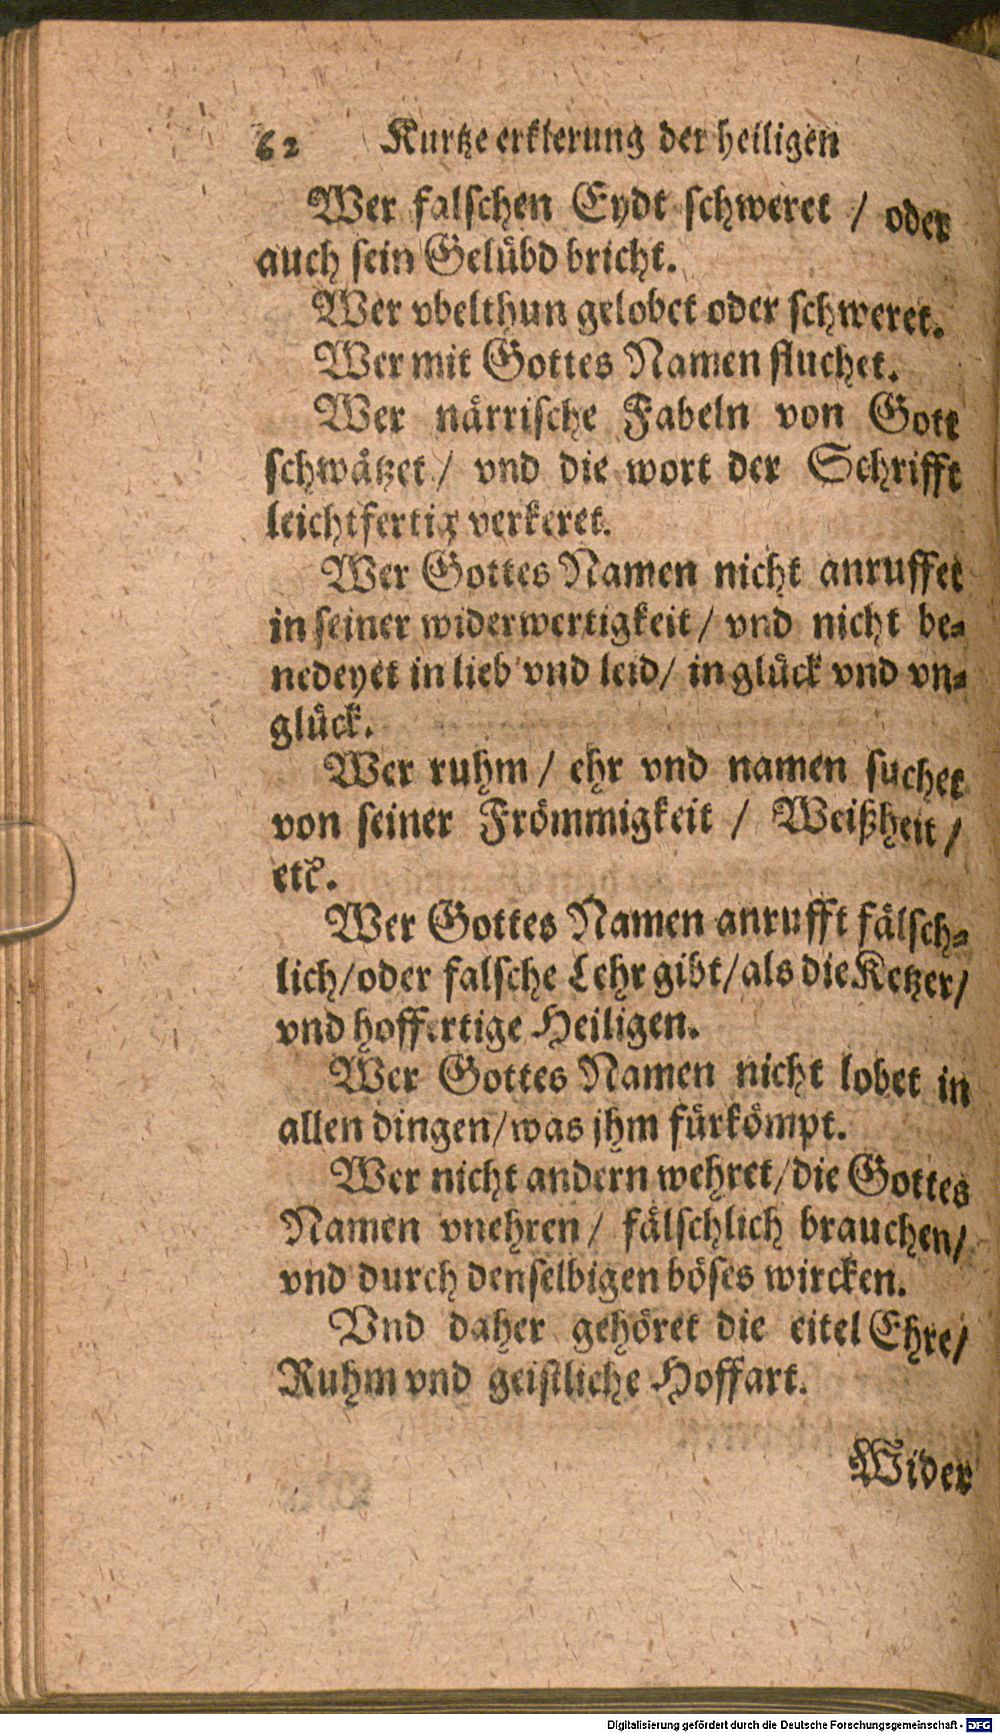 62 Kurtze erklerung der heiligen
Wer falschen Eydt schweret / oder
auch sein Gelübd bricht.
Wer vbelthun gelobet oder schweret.
Wer mit Gottes Namen fluchet.
Wer närrische Fabeln von Gott
schwätzet / vnd die wort der Schrifft
leichtfertig verkeret.
Wer Gottes Namen nicht anruffet
in seiner widerwertigkeit / vnd nicht be-
nedeyet in lieb vnd leid / in glück vnd vn-
glück.
Wer ruhm / ehr vnd namen suchet
von seiner Frömmigkeit / Weißheit /
etc.
Wer Gottes Namen anrufft fälsch-
lich / oder falsche Lehr gibt / als die Ketzer /
vnd hoffertige Heiligen.
Wer Gottes Namen nicht lobet in
allen dingen / was jhm fürkömpt.
Wer nicht andern wehret / die Gottes
Namen vnehren / fälschlich brauchen /
vnd durch denselbigen böses wircken.
Vnd daher gehöret die eitel Ehre /
Ruhm vnd geistliche Hoffart.
Wider
Digitalisierung gefördert durch die Deutsche Forschungsgemeinschaft - DFG